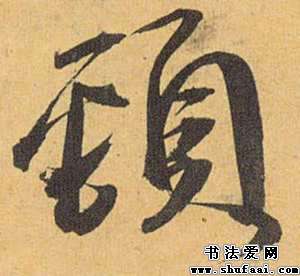 頸
书法爱网
www.shufaai.com